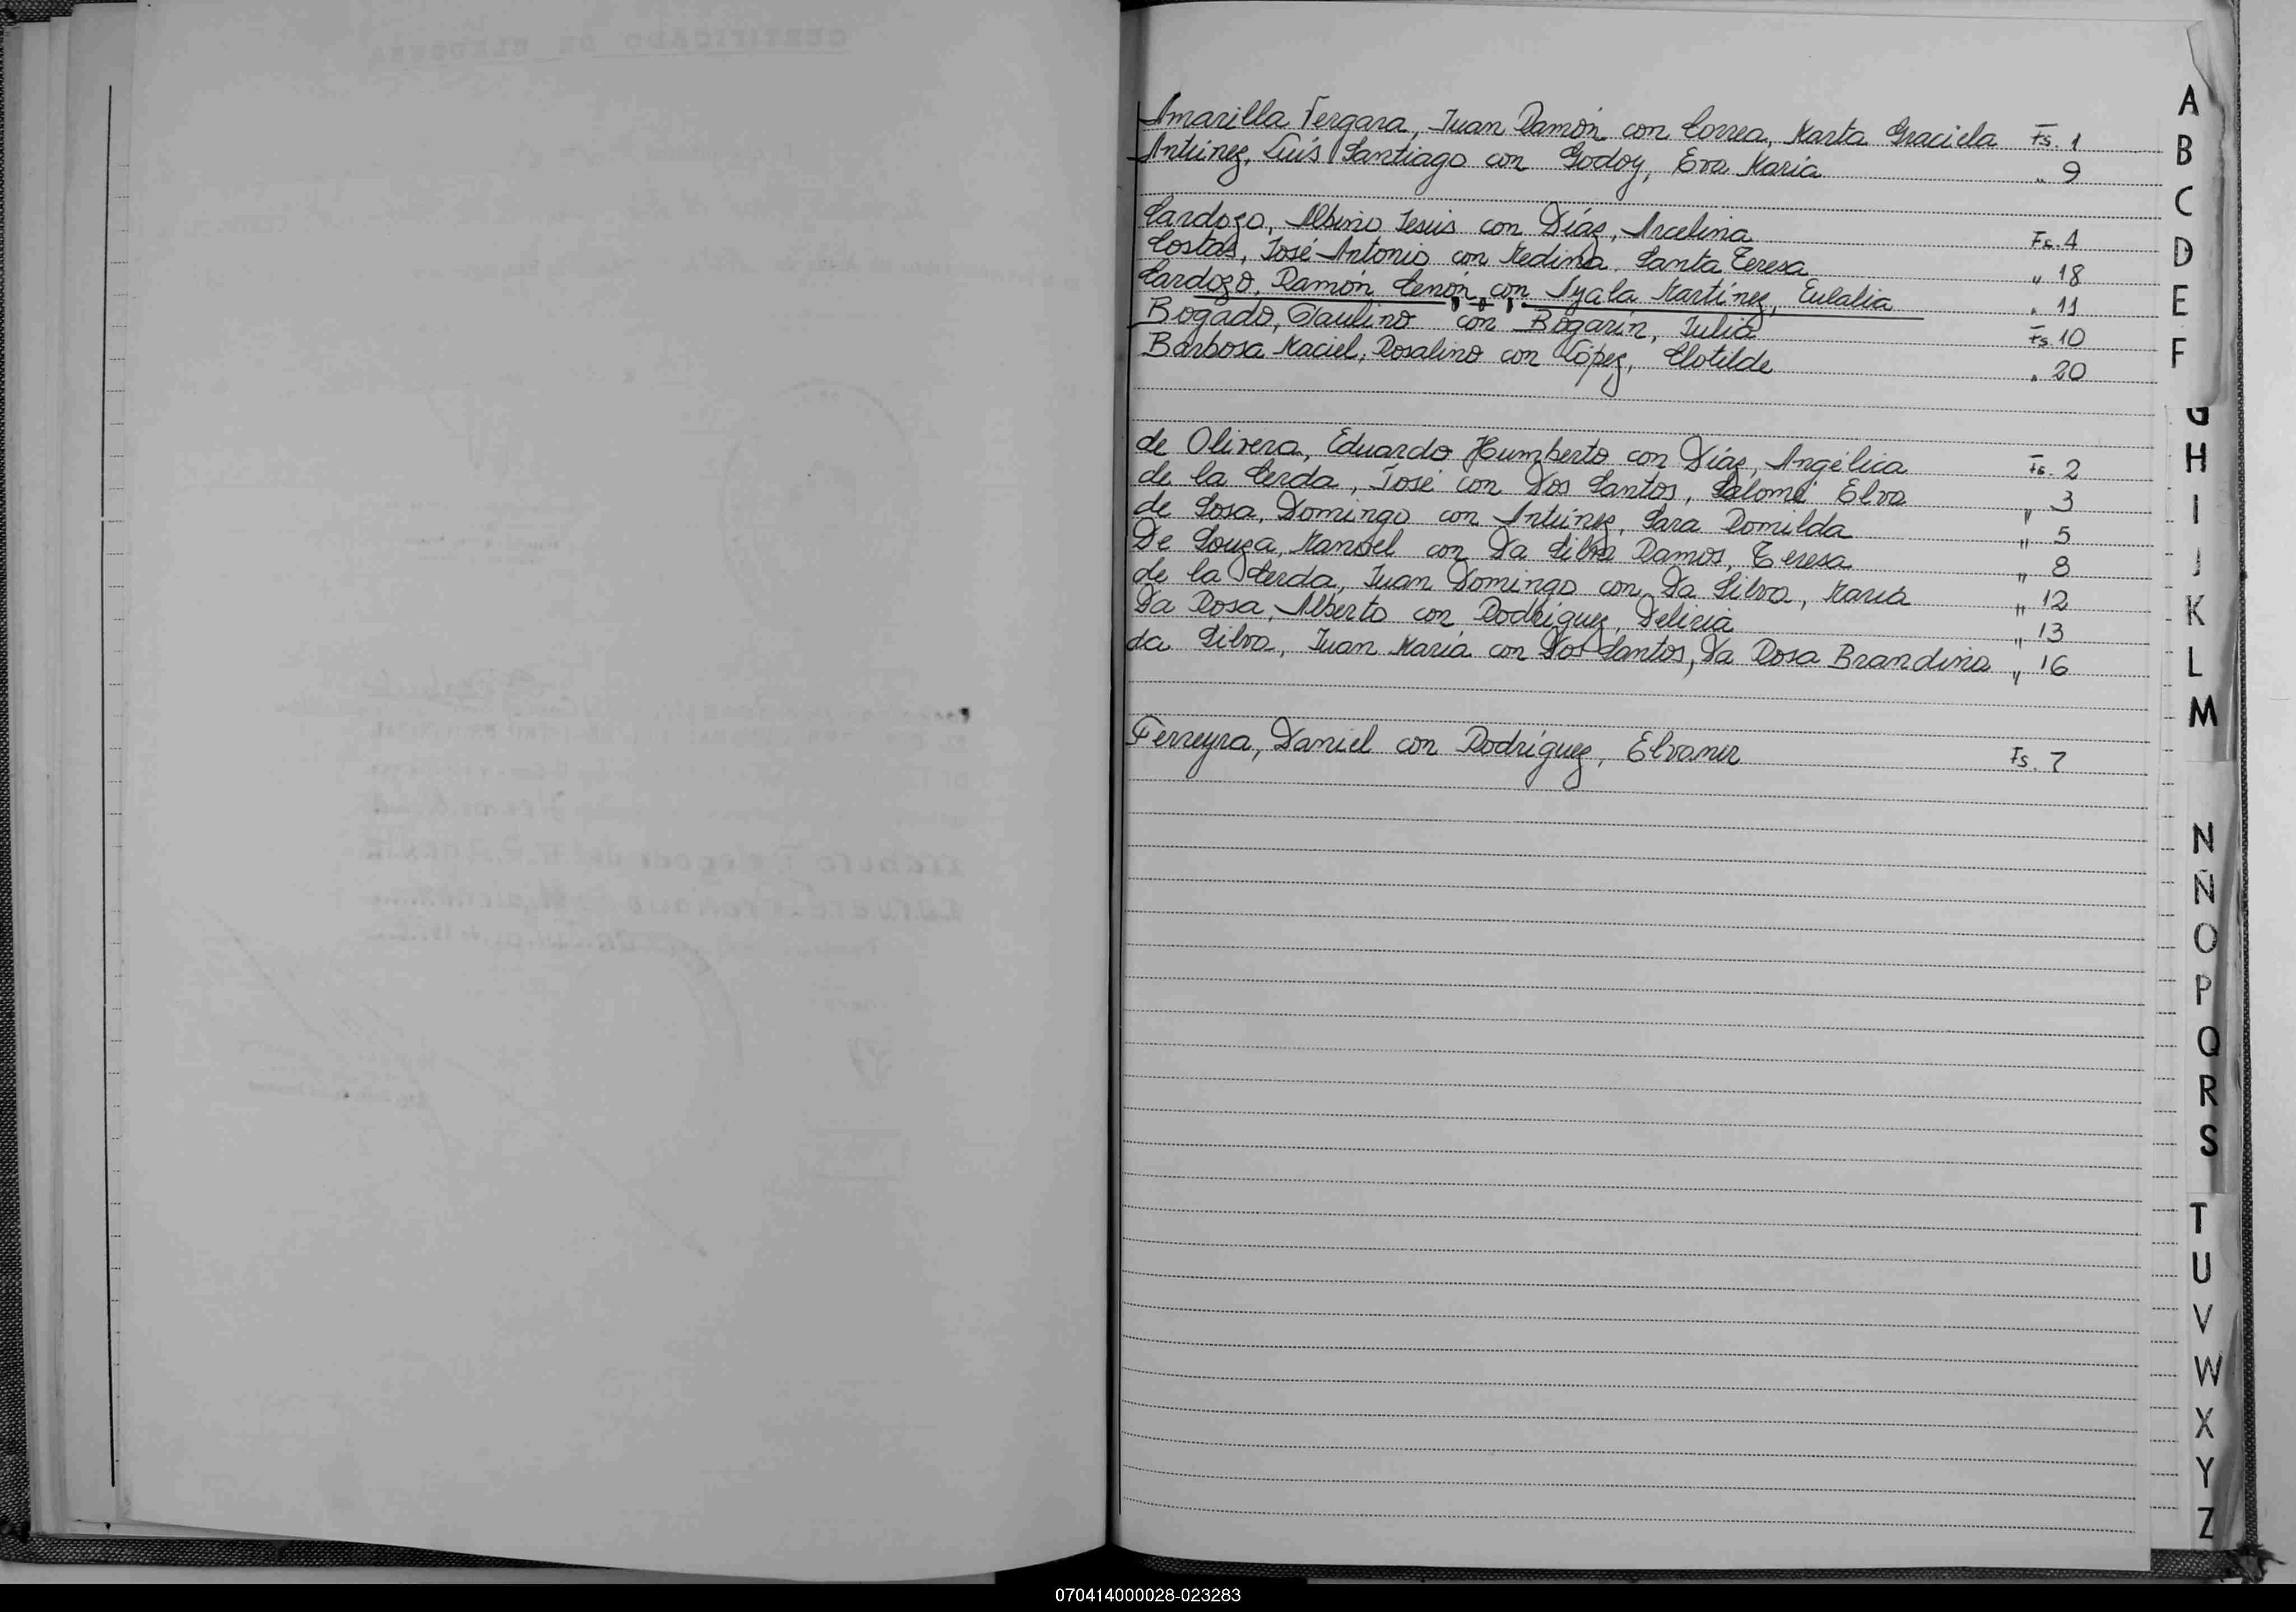 CERTIFICADO DE CLAUSURA
Amarilla Vergara, Juan Ramón con Correa, Marta Graciela Fs. 1
Antúnez, Luís Santiago con Godoy, Eva María " 9
Cardozo, Albino Jesús con Díaz, Arcelina Fs. 4
Costas, José Antonio con Medina, Santa Teresa " 18
Cardozo, Ramón Cenón con Ayala Martínez, Eulalia " 11
Bogado, Paulino con Bogarín, Julia Fs. 10
Barbosa Maciel, Rosalino con López, Clotilde " 20
de Olivera, Eduardo Humberto con Díaz, Angélica Fs. 2
de la Cerda, José con Dos Santos, Salomé Elva " 3
de Sosa, Domingo con Antúnez, Sara Romilda " 5
De Souza, Manoel con Da Silva Ramos, Teresa " 8
de la Cerda, Juan Domingo con Da Silva, María " 12
Da Rosa, Alberto con Rodríguez, Delicia " 13
da Silva, Juan María con Dos Santos, Da Rosa Brandina " 16
Ferreyra, Daniel con Rodríguez, Elvanir Fs. 7
A
B
C
D
E
F
G
H
I
J
K
L
M
N
Ñ
O
P
Q
R
S
T
U
V
W
X
Y
Z
070414000028-023283